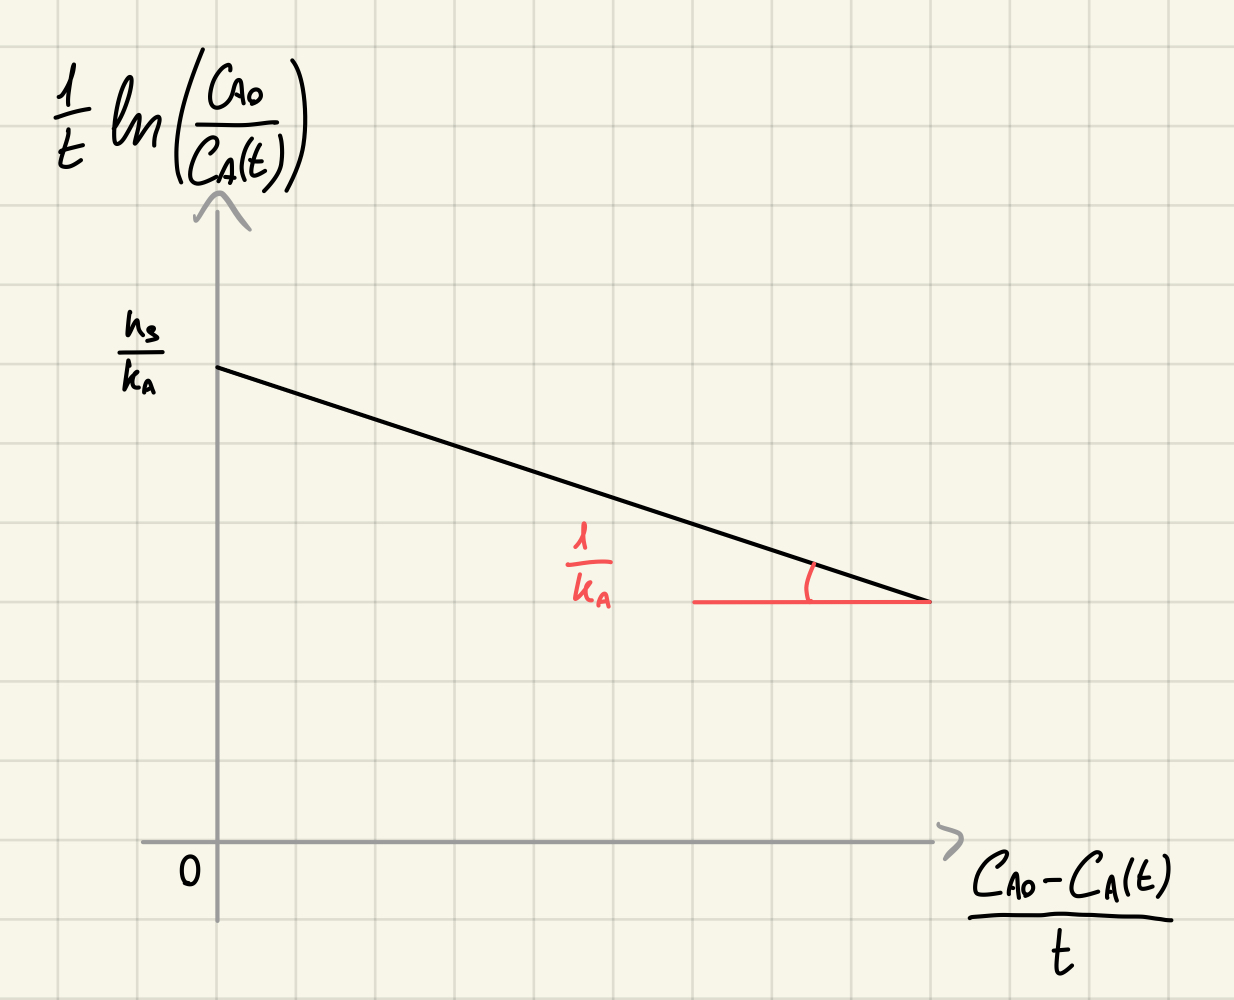 1/t ln(C_A0/C_A(t))
k_s/k_A
1/k_A
0
(C_A0 - C_A(t))/t